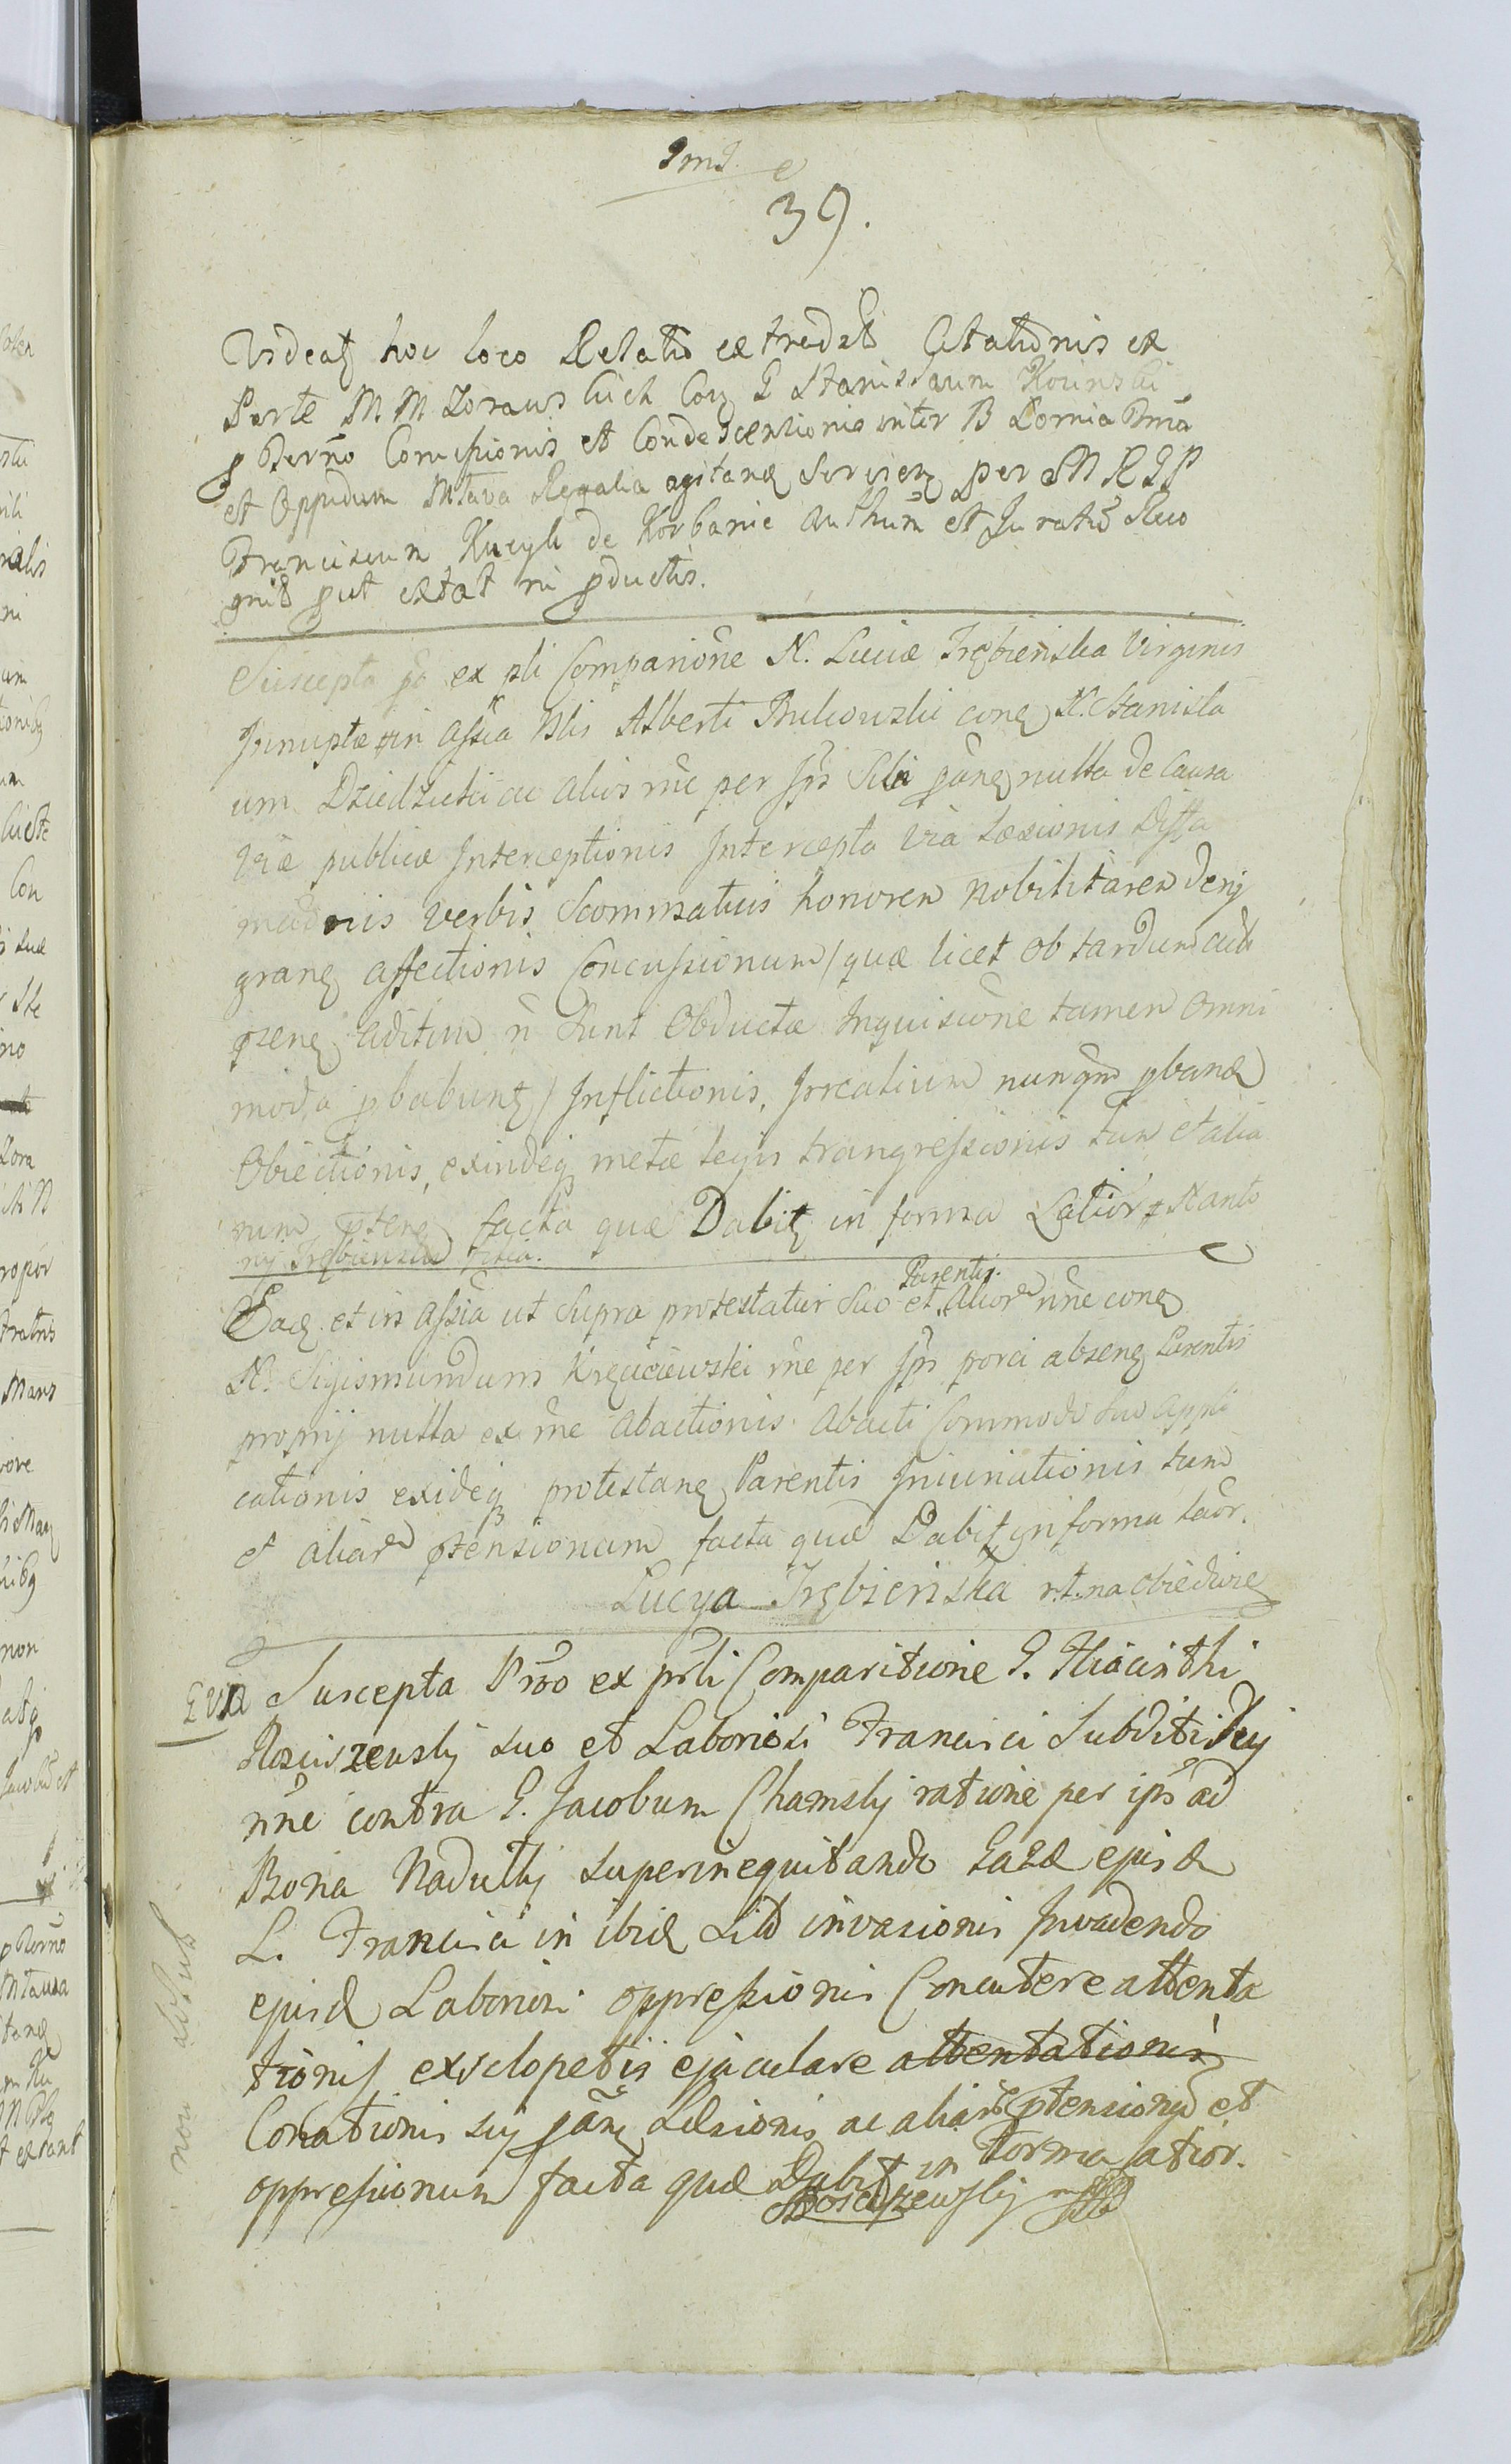 39.
Videatz hoc loco Relatio extradit Citationis ex
Parte M. M. Zorawskich Con G Stanislaum Kocinski
p Termo Comissionis et Condescensionis inter B Lomia Pma
et Oppidum Mlava Regalia agitanz Servien per M R G P
Franciscum Kucyk de Korbanie Authum et Juratu Reco
gnit put extat in pductis.
Suscepta pa ex pli Comparione N. Luciæ Trębienska Virginis
Innuptæ in assia Nlis Alberti Bukowski conz N. Stanisla
um Dziedzicki ac alios rne per Ips Sibi panz nulla de Causa
Viæ publicæ Interceptionis Intercepta Via Læsionis Diffa
mationis verbis Scommaticis honorem nobilitarem denj
granz affectionis Concussionum / quæ licet ob tardum
psenz aditum n sunt Obductæ Inquisicione tamen Omni
moda pbabunz / Inflictionis, Irrealium nunqm pband
Obiectionis, exindeq metæ legis transgressionis tum et alia
rum ptenz facta quæ Dabitz in forma Latior
Eadz et in assia ut supra protestatur Suo et Parentis. Alior nne conz
N. Sigismundum Kręciewski rne per Ips porci absenz Parentis
proprij nulla ex rne abactionis abacti Commodo suo appli
cationis exideq protestanz Parentis Iniuriationis tum
et aliar ptensionum facta quæ Dabit in forma laor.
Lucya Trębienska r. t. na obiedwie
Suscepta Pro ex prli Comparitione G. Hiacinthi
Rosciszewsky suo et Laboriosi Francisci Subditi Suj
nne contra G. Jacobum Chamsky ratione per ips ad
Bona Nadulky superinequitando Casæ ejusd
L. Francisci in ibid Sito invasionis Invadendo
ejusd Laboriosi oppressionis Concutere attenta
tionis exsclopetis ejaculare attentationis
Conationis suj panz Læsionis ac aliar ptensionu et
oppressionum facta quæ Dabit in forma latior.
Rosciszewsky mpp
non solut